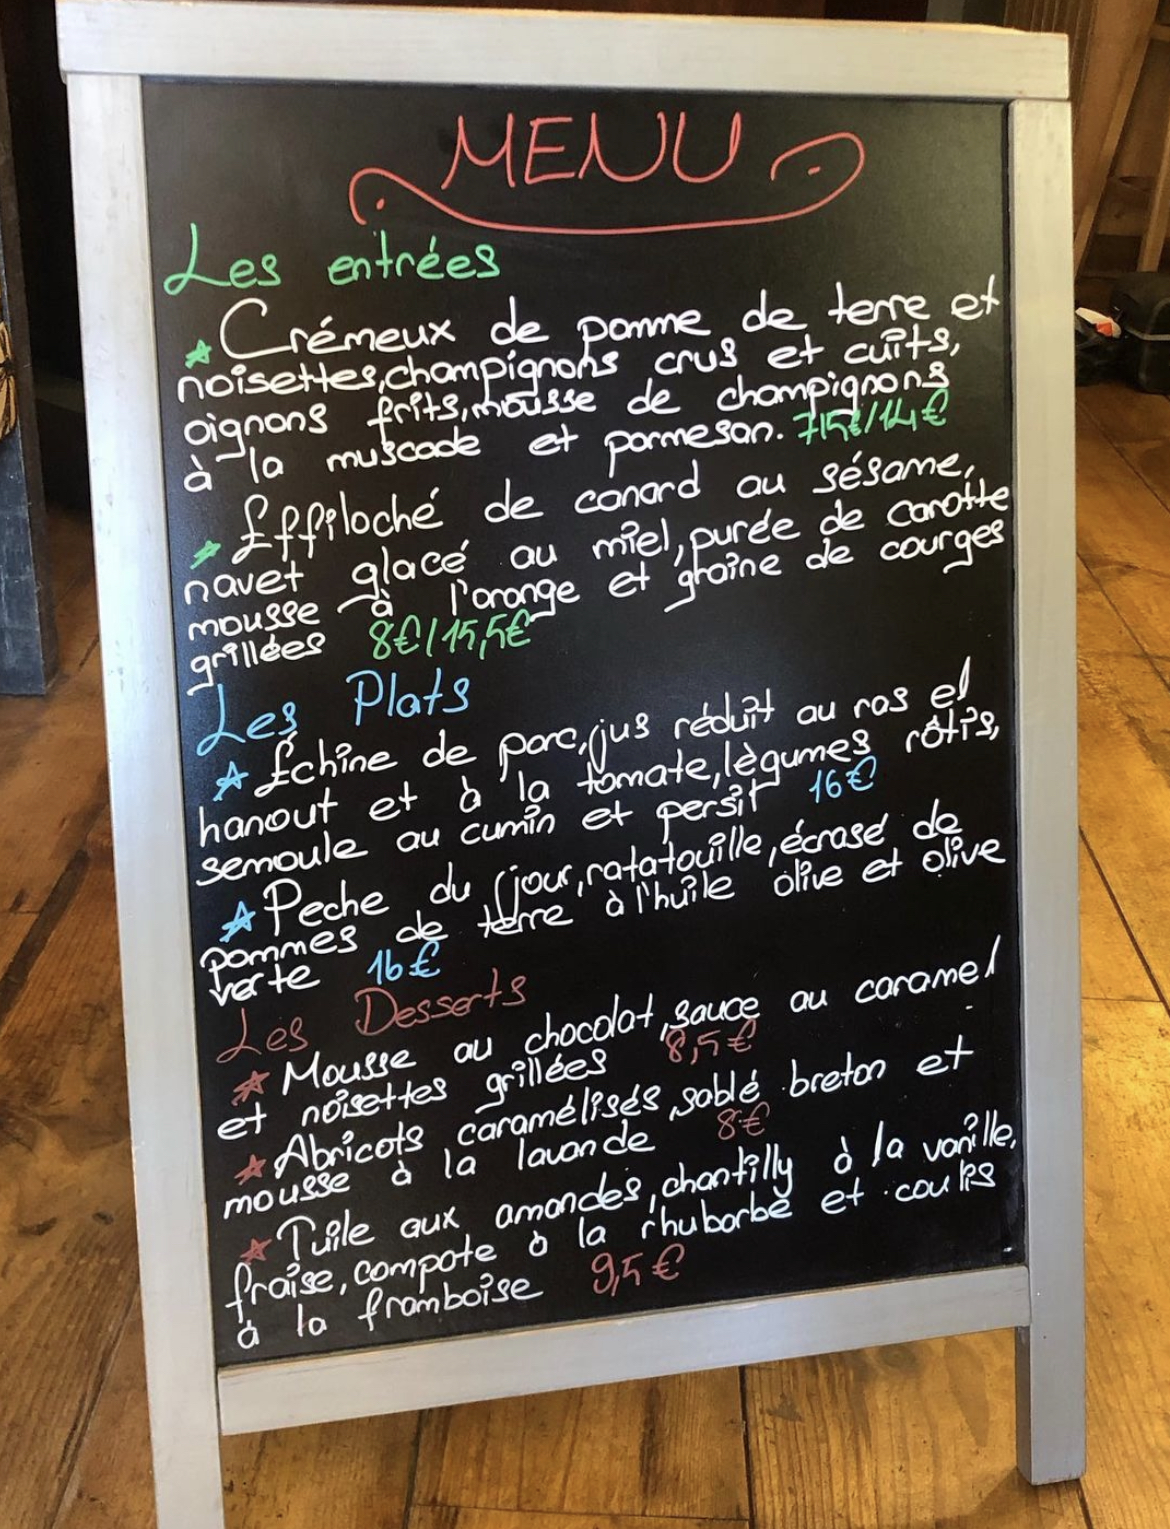 MENU
Les entrées
Crémeux de pomme de terre et
noisettes, champignons crus et cuits,
oignons frits, mousse de champignons
à la muscade et parmesan. 7,5€/14€
Effiloché de canard au sésame,
navet glacé au miel, purée de carotte
mousse à l'orange et graine de courges
grillées 8€/15,5€
Les Plats
Échine de porc, jus réduit au ras el
hanout et à la tomate, légumes rôtis,
semoule au cumin et persil 16€
Peche du jour, ratatouille, écrasé de
pommes de terre à l'huile olive et olive
verte 16€
Les Desserts
Mousse au chocolat, sauce au caramel
et noisettes grillées 8,5€
Abricots caramélisés, sablé breton et
mousse à la lavande 8€
Tuile aux amandes, chantilly à la vanille,
fraise, compote à la rhubarbe et coulis
à la framboise 9,5€